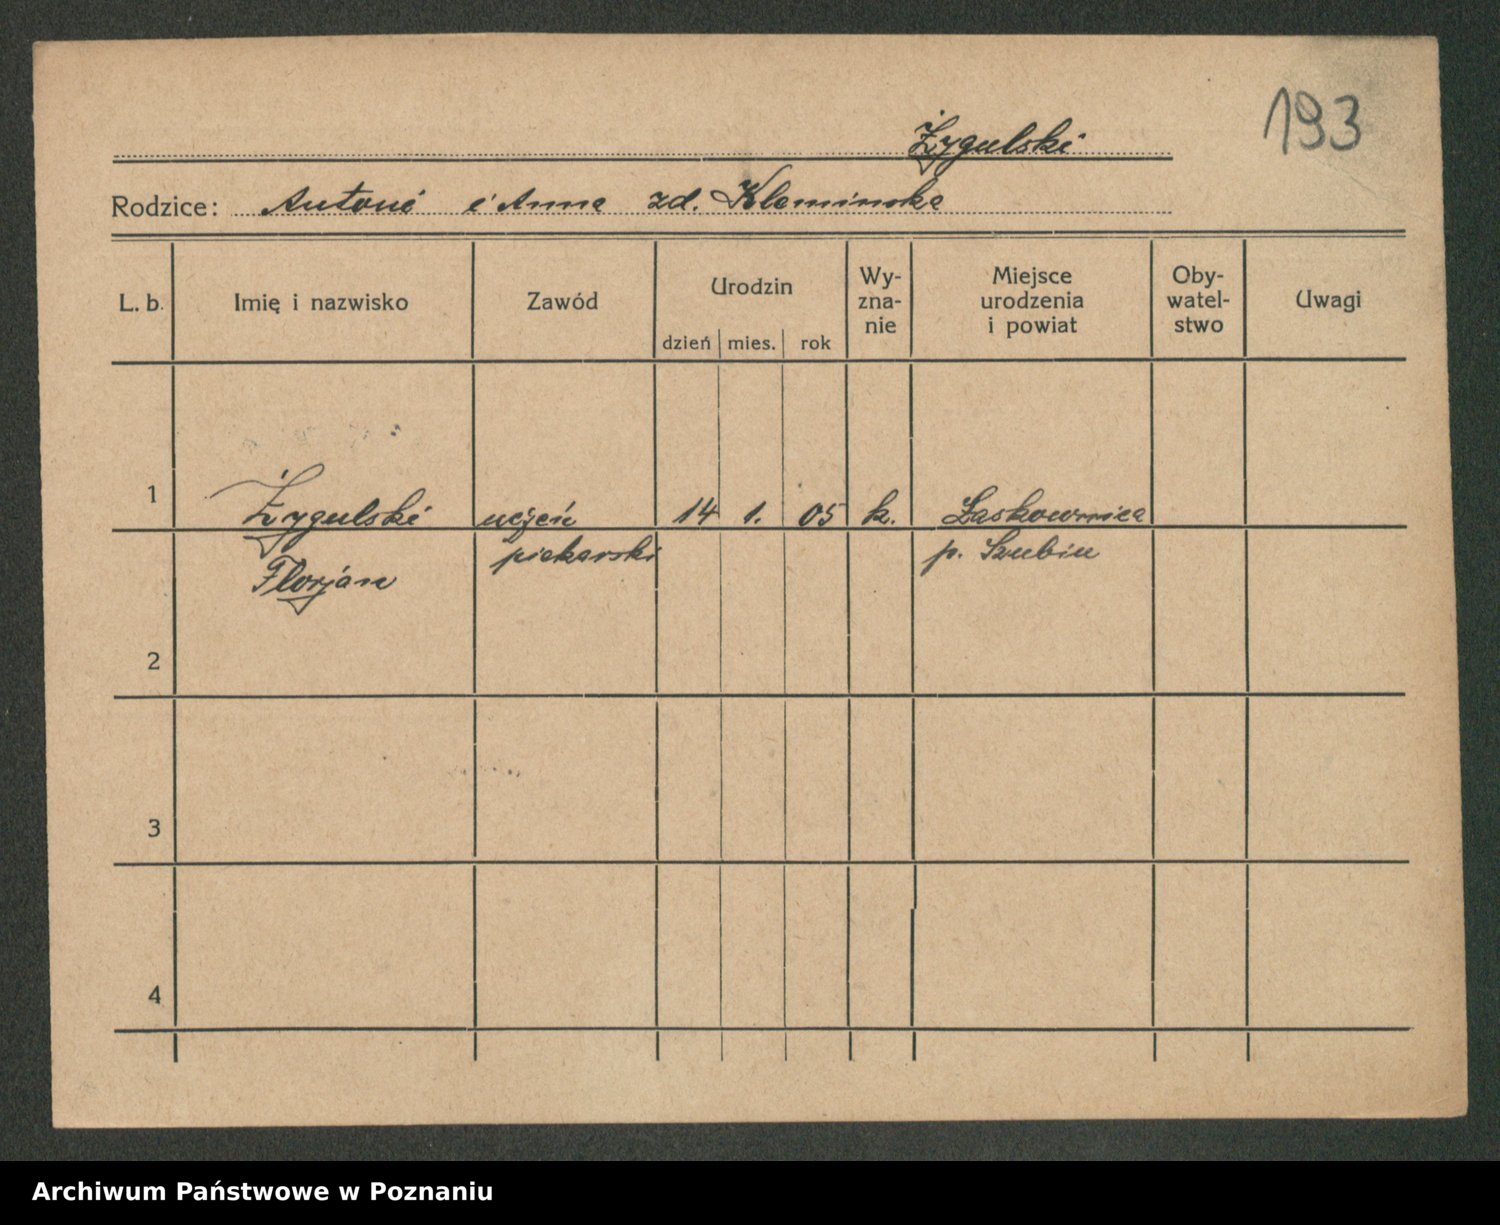 193
Żygulski
Rodzice: Antoni i Anna zd. Klemińska
L. b. Imię i nazwisko Zawód Urodzin dzień mies. rok Wy-zna-nie Miejsce urodzenia i powiat Oby-watel-stwo Uwagi
1 Żygulski uczeń 14 1. 05 k. Laskownica
Florjan piekarski p. Szubin
2
3
4
Archiwum Państwowe w Poznaniu